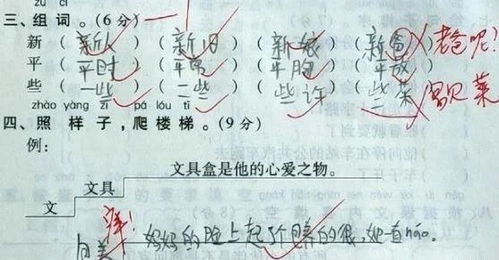 三、组词。(6分)
新(新人)(新旧)(新娘)(新爸)老爸呢?
平(平时)(平常)(平胸)(平放)
些(一些)(二些)(些许)(些菜)菜
zhào yàng zǐ pá lóu tī
四、照样子,爬楼梯。(9分)
例:
文具盒是他的心爱之物。
文具
文
妈妈的脸上起了个 的很,她一直